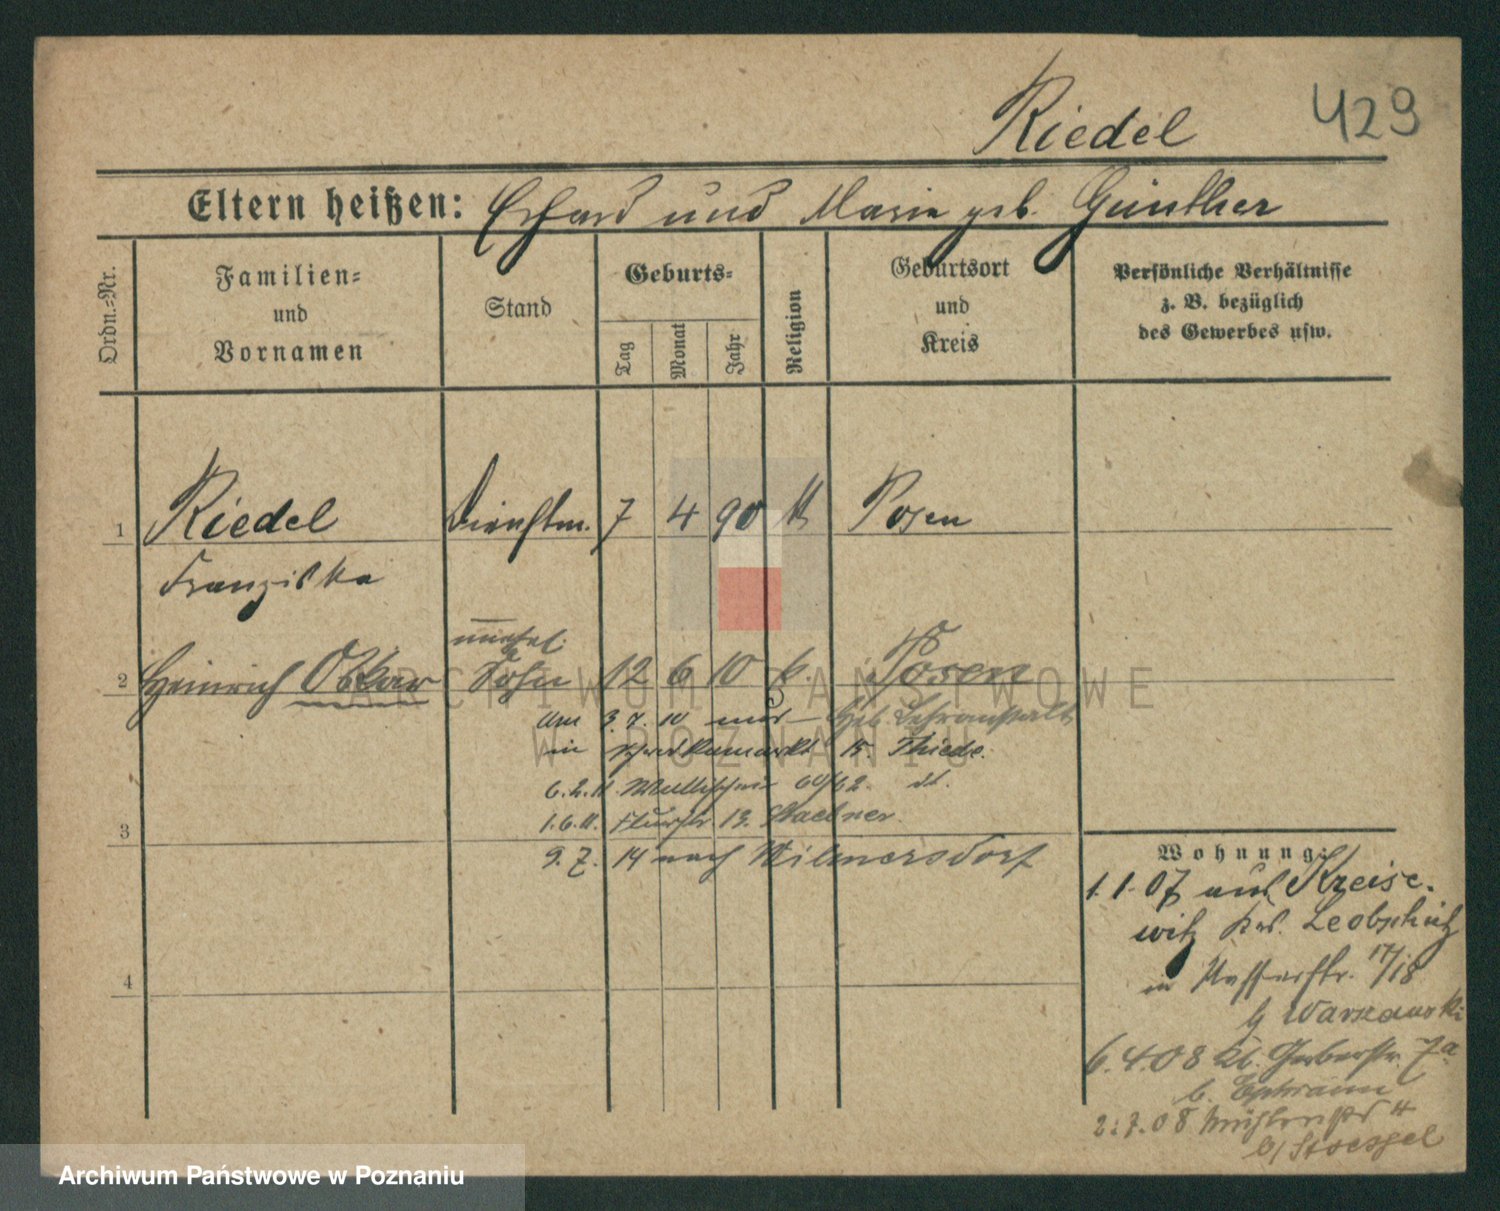 Riedel 429
Eltern heißen: Erhard und Marie geb. Günther
Ordn.=Nr.
Familien=
und
Vornamen
Stand
Geburts=
Tag
Monat
Jahr
Religion
Geburtsort
und
Kreis
Persönliche Verhältnisse
z. B. bezüglich
des Gewerbes usw.
1 Riedel Dienstm. 7 4 90 Posen
Franziska
unehel.
2 Heinrich Oskar Sohn 12 6 10 k. Posen
am 3.7.10 aus Heb. Lehranstalt
in 15. Thiede.
6.2.11. Wallischei 60/62. dt.
3
1.6.11. Flurstr 13.
9.7.14 nach Wilmersdorf
4
Wohnung:
1.1.07 aus Kreise-
witz Krs. Leobschütz
in 17/18
Warszawski
6.4.08 Kl. Gerberstr. 7a
b. Ephraim
2.7.08 4
b/ Stoessel
ARCHIWUM PAŃSTWOWE
W POZNANIU
Archiwum Państwowe w Poznaniu